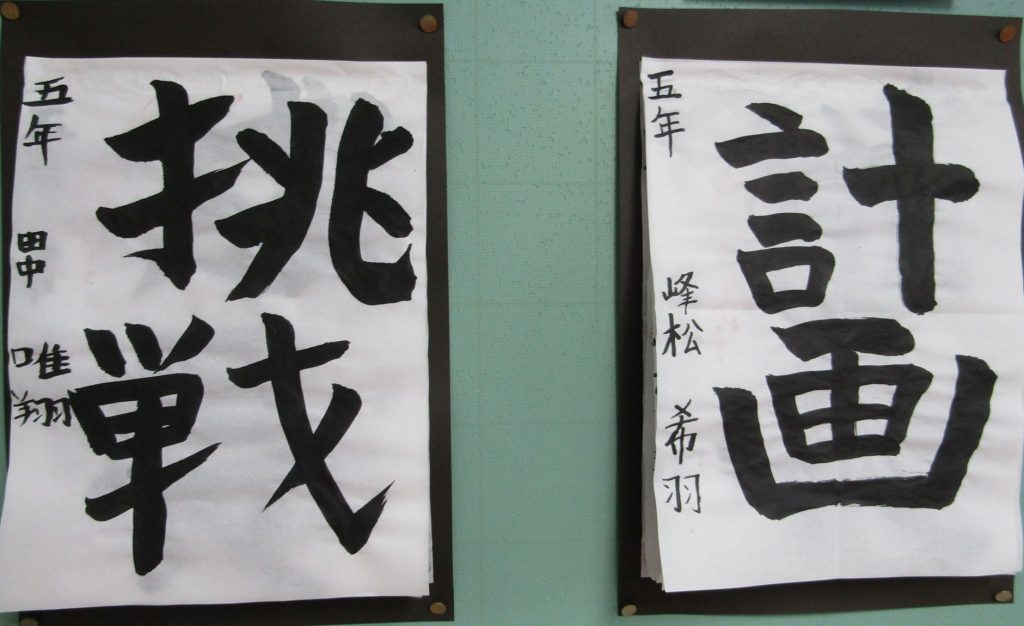 挑戦
五年 田中 唯翔
計画
五年 峰松 希羽